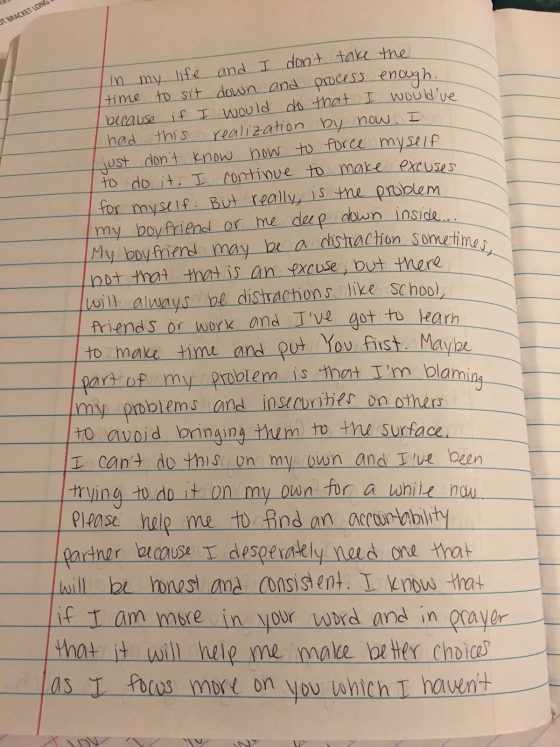 OT BRACKET LONG S
in my life and I don't take the
time to sit down and process enough.
because if I would do that I would've
had this realization by now. I
just don't know how to force myself
to do it. I continue to make excuses
for myself. But really, is the problem
my boyfriend or me deep down inside...
My boyfriend may be a distraction sometimes,
not that that is an excuse, but there
will always be distractions like school,
friends or work and I've got to learn
to make time and put You first. Maybe
part of my problem is that I'm blaming
my problems and insecurities on others
to avoid bringing them to the surface.
I can't do this on my own and I've been
trying to do it on my own for a while now.
Please help me to find an accountability
partner because I desperately need one that
will be honest and consistent. I know that
if I am more in your word and in prayer
that it will help me make better choices
as I focus more on you which I haven't